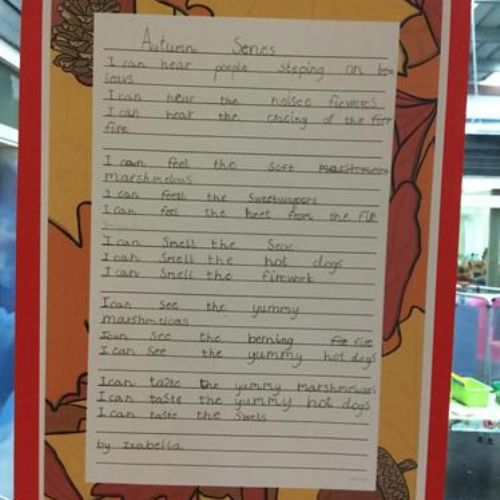 Autumn Senses
I can hear people steping on
leavs
I can hear the noisee fierweres
I can hear the cracing of the fier
fire
I can feel the soft marshme
marshmelows
I can feel the sweetwrapers
I can feel the heet from the fie
I can smell the
I can smell the hot dogs
I can smell the firework
I can see the yummy
marshmeloas
I can see the berning fie fire
I can see the yummy hot dogs
I can taste the yummy marshmelows
I can taste the yummy hot dogs
I can taste the swets
by Izabella